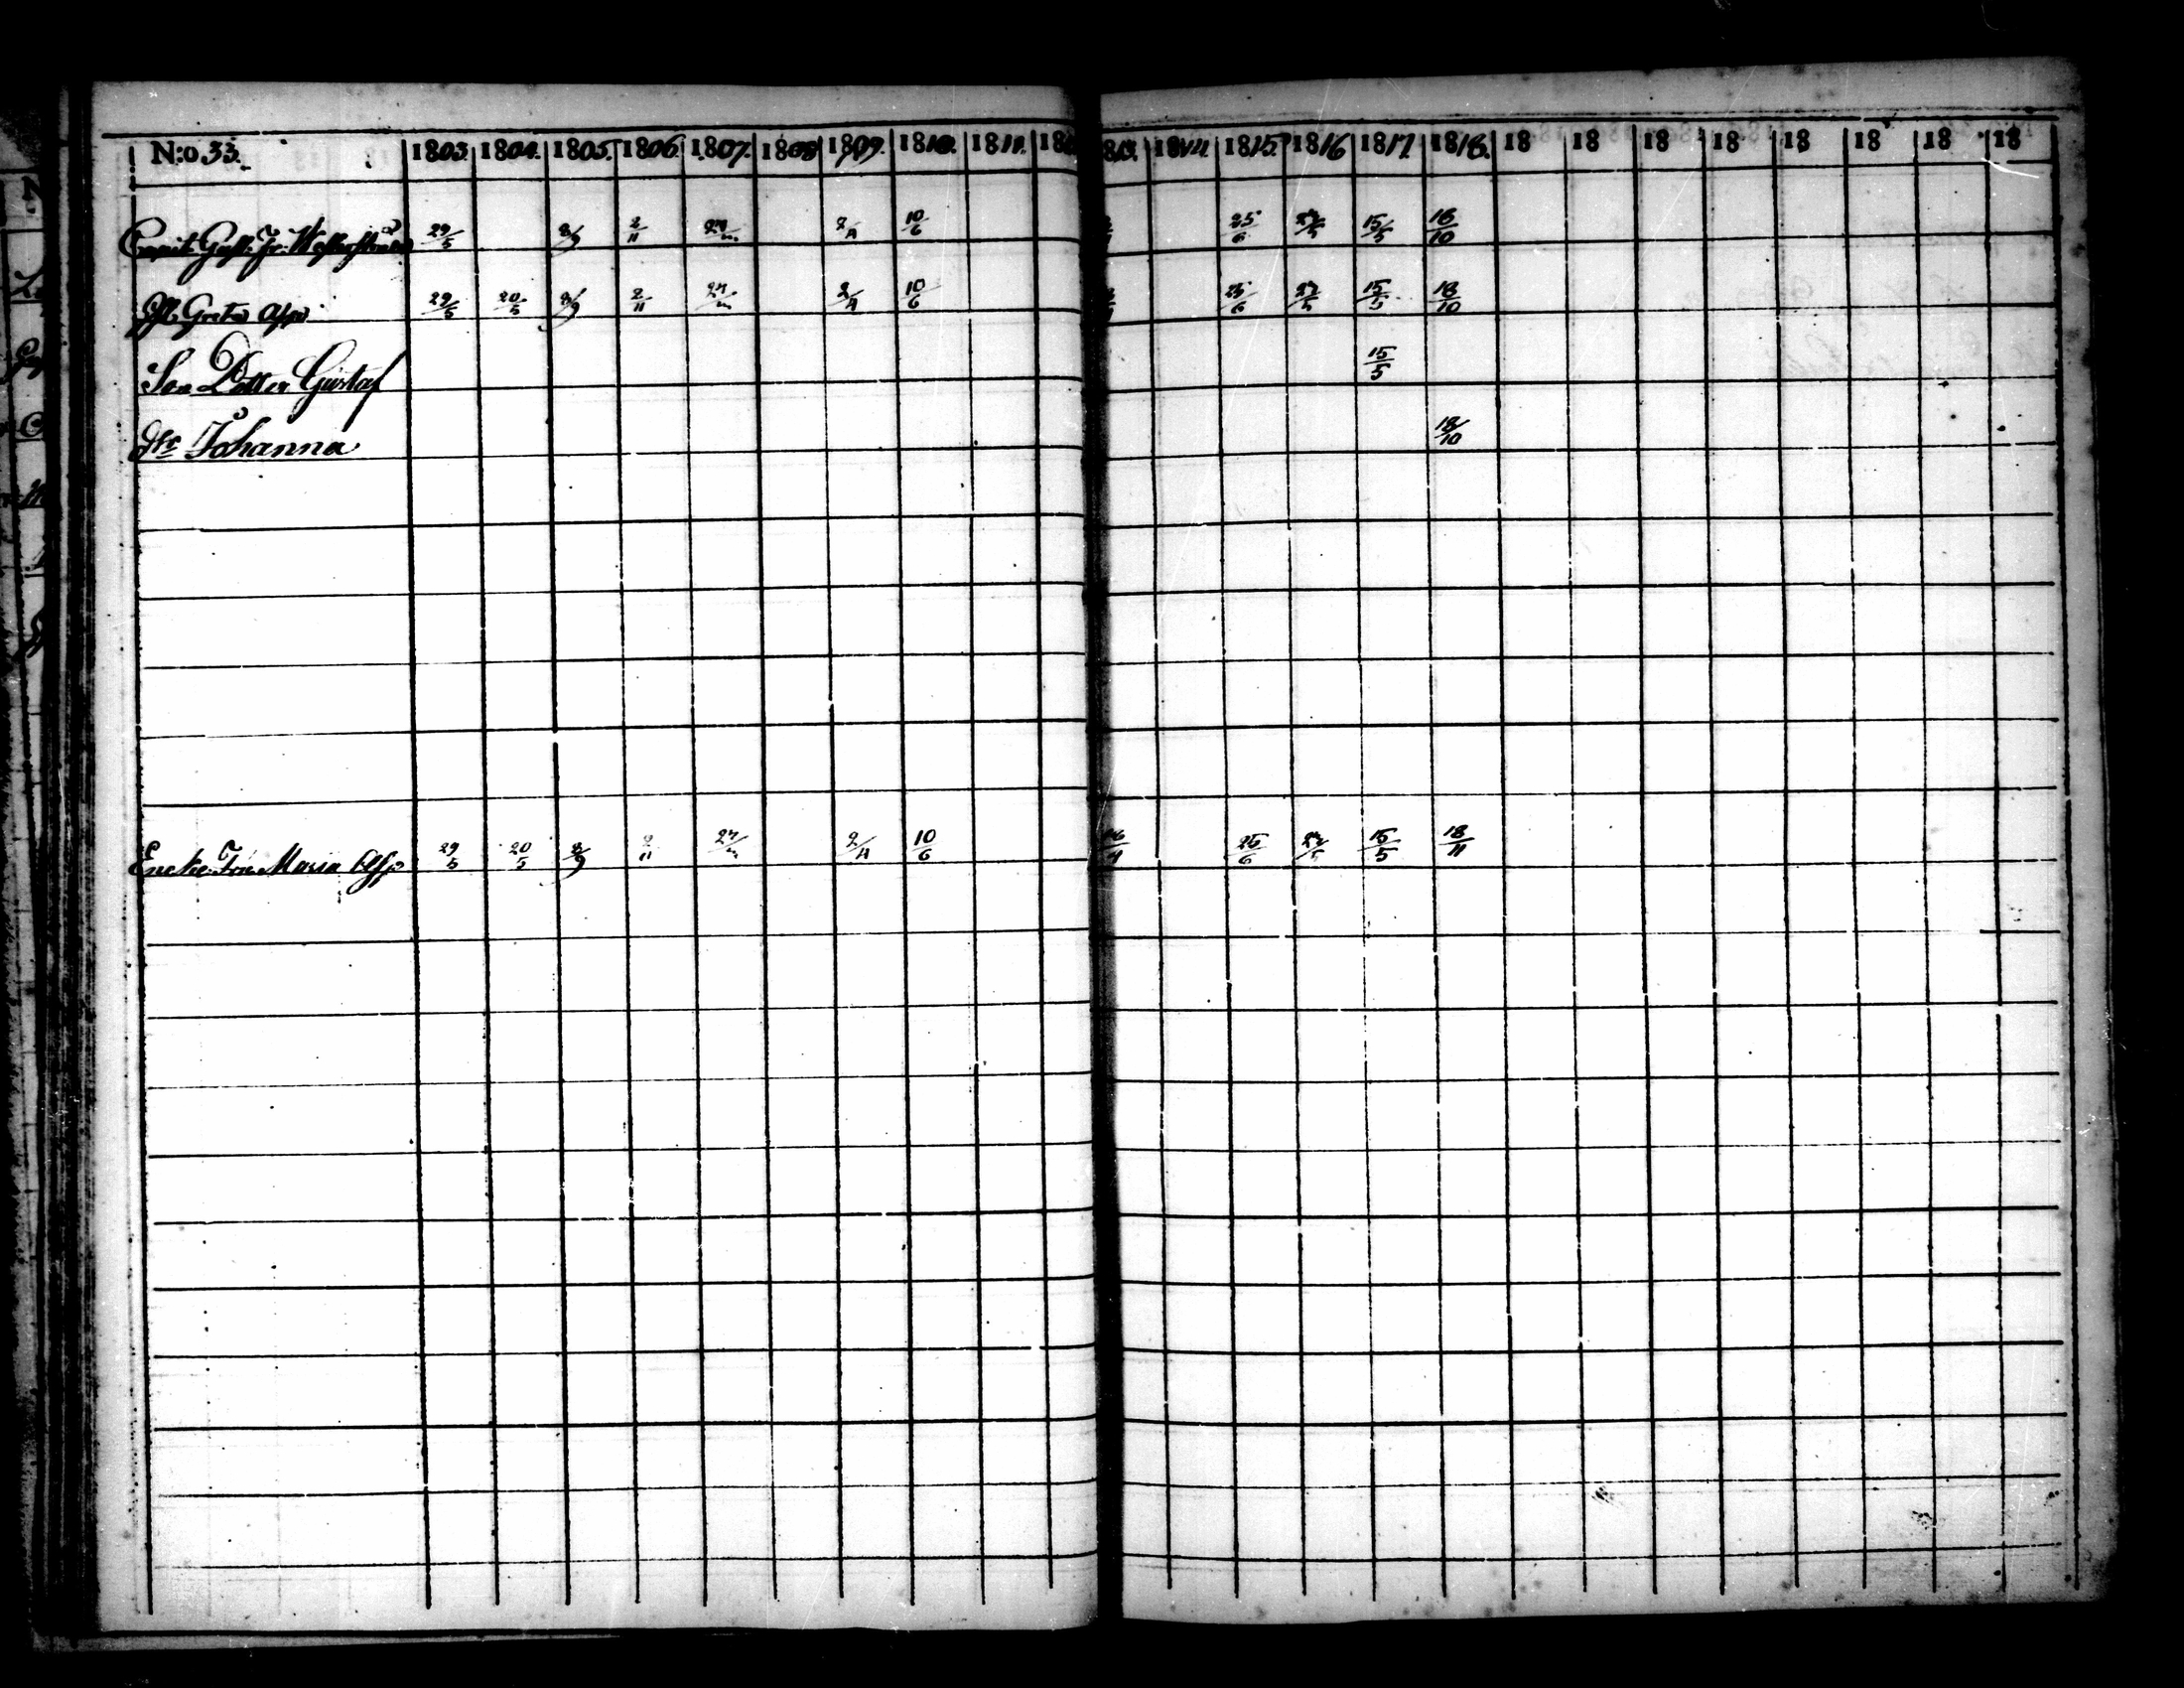 N:o 33. 1803 1804. 1805. 1806. 1807. 1808 1809. 1810. 1811. 18 1813. 1814 1815. 1816 1817. 1818. 18 18 18 18 18 18 18 18
Capit. Gust. Fr. 29/5 8/9 2/11 27/ 2/4 10/6 25/6 27/5 15/5 18/10
Greta 29/5 20/5 8/9 2/11 27/ 2/4 10/6 25/6 27/5 15/5 18/10
Son Gustaf 15/5
Johanna 18/10
Encke Fru Maria 29/5 20/5 8/9 2/11 27/ 2/4 10/6 25/6 27/5 15/5 18/11